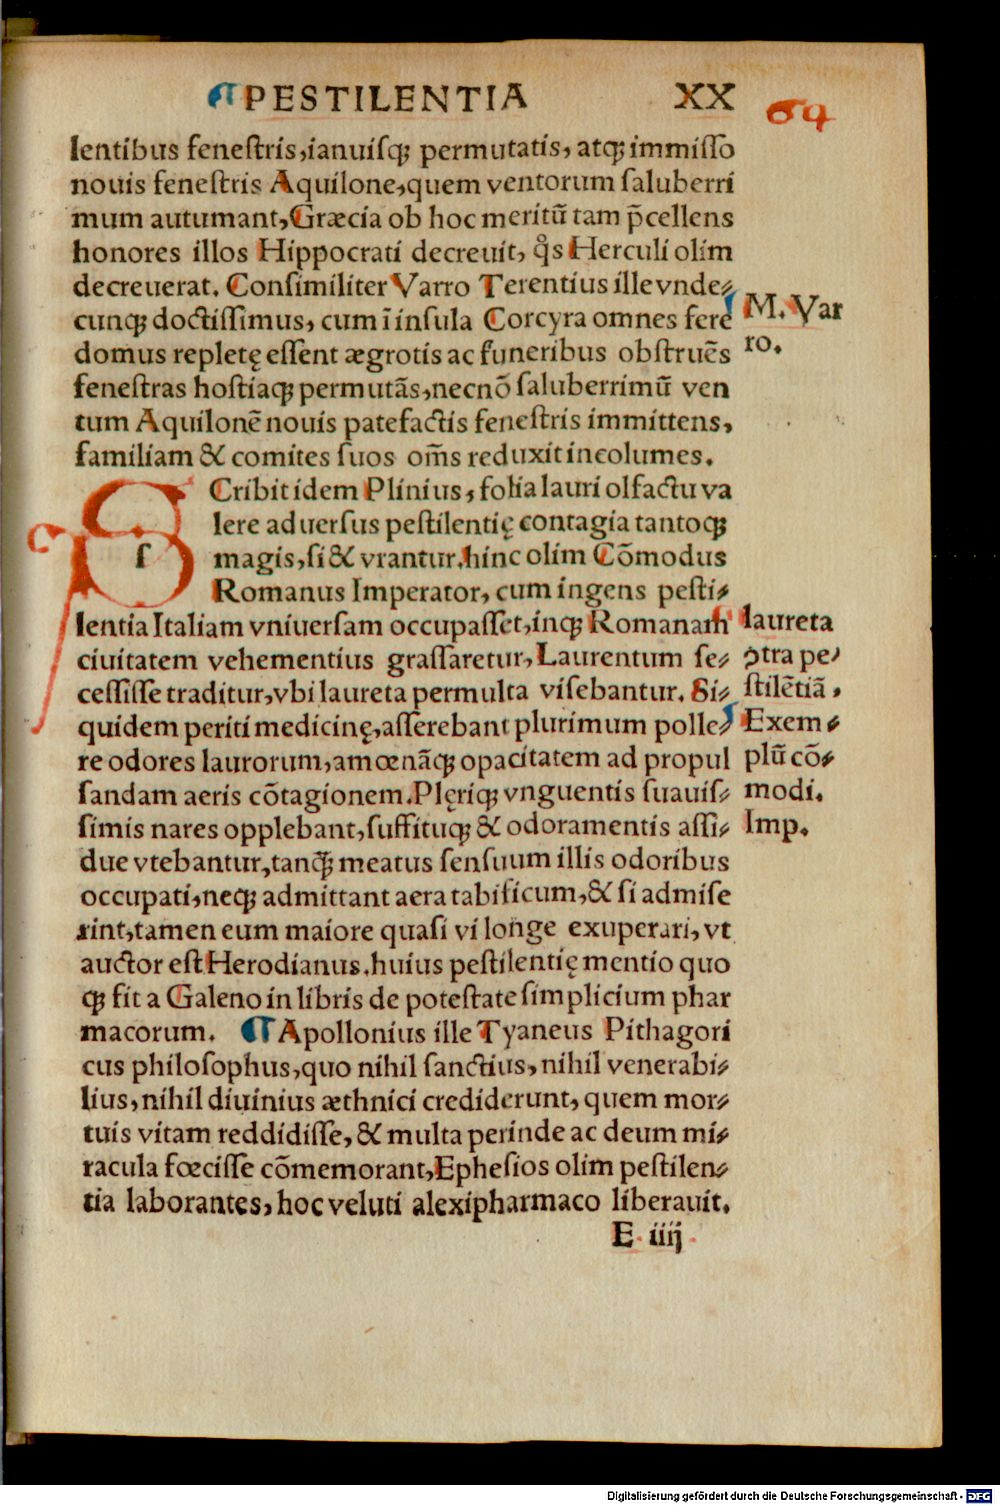 ¶PESTILENTIA XX 64
lentibus feneſtris,ianuiſqꝫ permutatis, atqꝫ immiſſo
nouis feneſtris Aquilone,quem ventorum ſaluberri
mum autumant,Græcia ob hoc meritũ tam p̃cellens
honores illos Hippocrati decreuit, qͦs Herculi olim
decreuerat. Conſimiliter Varro Terentius ille vnde⸗
cunqꝫ doctiſſimus, cum ĩ inſula Corcyra omnes fere
domus repletę eſſent ægrotis ac funeribus obſtruẽs
feneſtras hoſtiaqꝫ permutãs,necnõ ſaluberrimũ ven
tum Aquilonẽ nouis patefactis feneſtris immittens,
familiam & comites ſuos om̃s reduxit incolumes.
M. Var
ro.
S
ſ
Cribit idem Plinius, folia lauri olfactu va
lere aduerſus peſtilentię contagia tantoqꝫ
magis, ſi & vrantur.hinc olim Cõmodus
Romanus Imperator, cum ingens peſti⸗
lentia Italiam vniuerſam occupaſſet,inqꝫ Romanam
ciuitatem vehementius graſſaretur,Laurentum ſe⸗
ceſſiſſe traditur,vbi laureta permulta viſebantur. Si⸗
quidem periti medicinę,aſſerebant plurimum polle⸗
re odores laurorum,amœnãqꝫ opacitatem ad propul
ſandam aeris cõtagionem.Plęriqꝫ vnguentis ſuauiſ⸗
ſimis nares opplebant,ſuffituqꝫ & odoramentis aſſi⸗
due vtebantur,tanqꝫ̃ meatus ſenſuum illis odoribus
occupati,neqꝫ admittant aera tabificum,& ſi admiſe
rint,tamen eum maiore quaſi vi longe exuperari, vt
auctor eſt Herodianus.huius peſtilentię mentio quo
qꝫ fit a Galeno in libris de poteſtate ſimplicium phar
macorum. ¶Apollonius ille Tyaneus Pithagori
cus philoſophus,quo nihil ſanctius, nihil venerabi⸗
lius, nihil diuinius æthnici crediderunt, quem mor⸗
tuis vitam reddidiſſe, & multa perinde ac deum mi⸗
racula fœciſſe cõmemorant,Epheſios olim peſtilen⸗
tia laborantes, hoc veluti alexipharmaco liberauit.
laureta
ꝯtra pe⸗
ſtilẽtiã.
Exem⸗
plũ cõ⸗
modi.
Imp.
E iiij
Digitalisierung gefördert durch die Deutsche Forschungsgemeinschaft - DFG